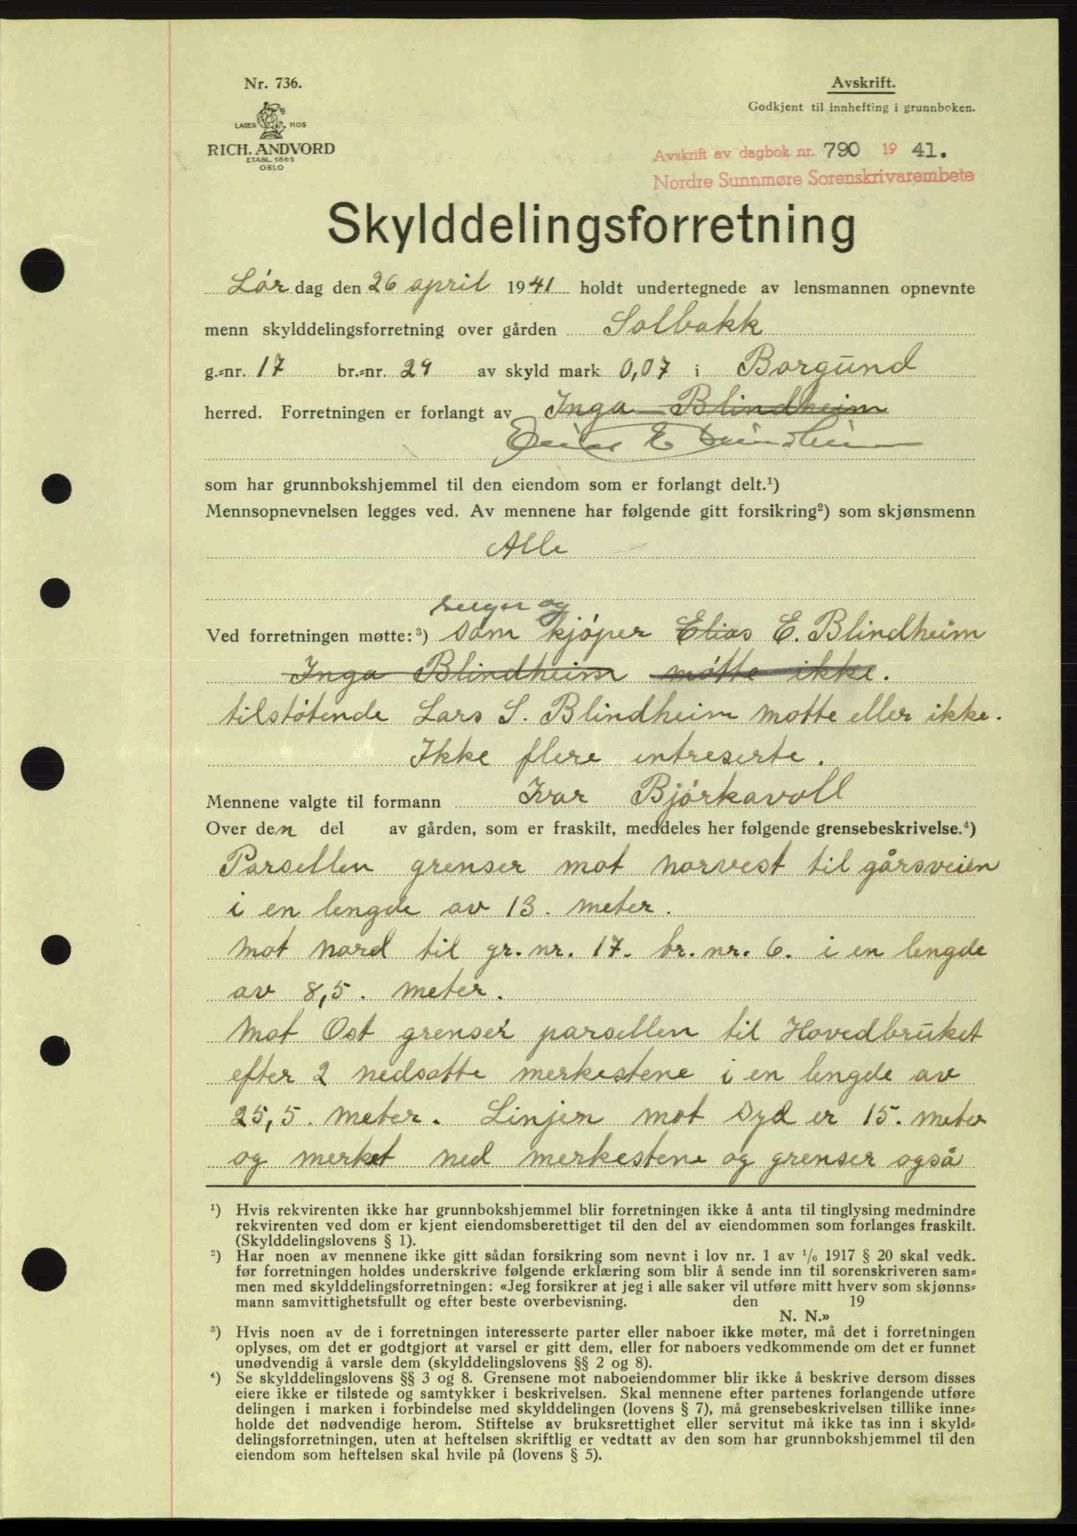 Nr. 736.
Avskrift.
Godkjent til innhefting i grunnboken.
LAGER HOS
RICH. ANDVORD
ETABL. 1865
OSLO
Avskrift av dagbok nr. 790 19 41.
Nordre Sunnmøre Sorenskrivarembete
Skylddelingsforretning
Lør dag den 26 april 1941 holdt undertegnede av lensmannen opnevnte
menn skylddelingsforretning over gården Solbakk
g.-nr. 17 br.-nr. 29 av skyld mark 0,07 i Borgund
herred. Forretningen er forlangt av Inga Blindheim
E
som har grunnbokshjemmel til den eiendom som er forlangt delt.¹)
Mennsopnevnelsen legges ved. Av mennene har følgende gitt forsikring²) som skjønsmenn
Alle
selger og
Ved forretningen møtte:³) som kjøper Elias E. Blindheim
Inga Blindheim møtte ikke.
tilstøtende Lars S. Blindheim motte eller ikke.
Ikke flere intreserte.
Mennene valgte til formann Ivar Bjórkavoll
Over den del av gården, som er fraskilt, meddeles her følgende grensebeskrivelse.⁴)
Parsellen grenser mot norvest til gårsveien
i en lengde av 13. meter.
Mot nord til gr. nr. 17. br. nr. 6. i en lengde
av 8,5. meter.
Mot Ost grenser parsellen til Hovedbruket
efter 2 nedsatte merkestene i en lengde av
25,5. meter. Linjen mot Syd er 15. meter
og merket ned merkestene og grenser også
¹) Hvis rekvirenten ikke har grunnbokshjemmel blir forretningen ikke å anta til tinglysing medmindre
rekvirenten ved dom er kjent eiendomsberettiget til den del av eiendommen som forlanges fraskilt.
(Skylddelingslovens § 1).
²) Har noen av mennene ikke gitt sådan forsikring som nevnt i lov nr. 1 av 1/6 1917 § 20 skal vedk.
før forretningen holdes underskrive følgende erklæring som blir å sende inn til sorenskriveren sam-
men med skylddelingsforretningen: «Jeg forsikrer at jeg i alle saker vil utføre mitt hverv som skjønns-
mann samvittighetsfullt og efter beste overbevisning. den 19
N. N.»
³) Hvis noen av de i forretningen interesserte parter eller naboer ikke møter, må det i forretningen
oplyses, om det er godtgjort at varsel er gitt dem, eller for naboers vedkommende om det er funnet
unødvendig å varsle dem (skylddelingslovens §§ 2 og 8).
⁴) Se skylddelingslovens §§ 3 og 8. Grensene mot naboeiendommer blir ikke å beskrive dersom disses
eiere ikke er tilstede og samtykker i beskrivelsen. Skal mennene efter partenes forlangende utføre
delingen i marken i forbindelse med skylddelingen (lovens § 7), må grensebeskrivelsen tillike inne-
holde det nødvendige herom. Stiftelse av bruksrettighet eller servitut må ikke tas inn i skyld-
delingsforretningen, uten at heftelsen skriftlig er vedtatt av den som har grunnbokshjemmel til den
eiendom som heftelsen skal hvile på (lovens § 5).